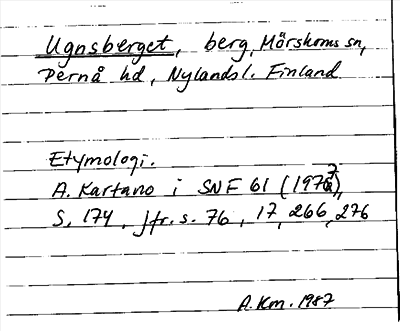 Ugnsberget, berg, Mörskoms sn,
Pernå hd, Nylands l. Finland
Etymologi.
A. Kartano i SNF 61 (1977),
s. 174, jfr. s. 76, 17, 266, 276
A.Km. 1987